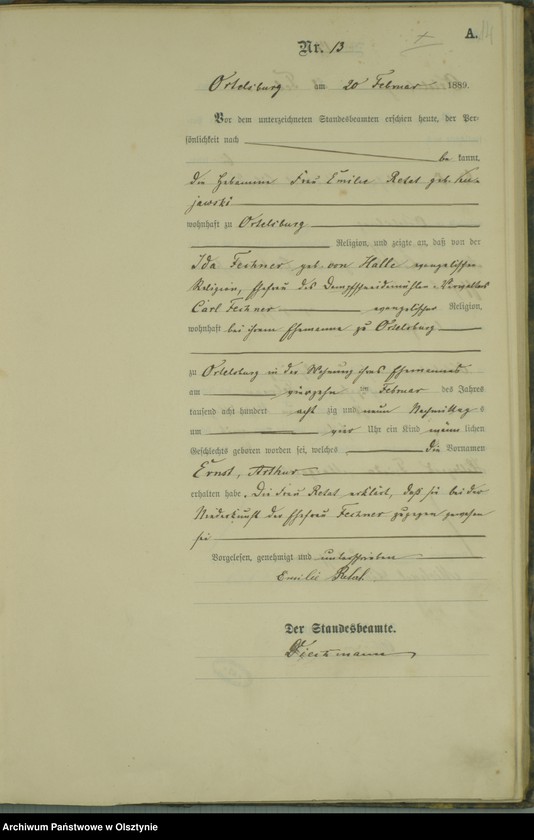 A.
14
Nr. 13
Ortelsburg am 20 Februar 1889.
Vor dem unterzeichneten Standesbeamten erschien heute, der Per-
sönlichkeit nach
be kannt,
die Hebamme Frau Emilie Retat geb. Ku-
jawski
wohnhaft zu Ortelsburg
Religion, und zeigte an, daß von der
Ida Fechner geb. von Halle evangelischer
Religion, Ehefrau des Dampfschneidemühlen-Verwalters
Carl Fechner evangelischer Religion,
wohnhaft bei ihrem Ehemanne zu Ortelsburg
zu Ortelsburg in der Wohnung ihres Ehemannes
am vierzehn im Februar des Jahres
tausend acht hundert acht zig und neun Nachmittag s
um vier Uhr ein Kind männ lichen
Geschlechts geboren worden sei, welches die Vornamen
Ernst, Arthur
erhalten habe. Die Frau Retat erklärt, daß sie bei der
Niederkunft der Ehefrau Fechner zugegen gewesen
sei
Vorgelesen, genehmigt und unterschrieben
Emilie Retat
Der Standesbeamte.
Archiwum Państwowe w Olsztynie